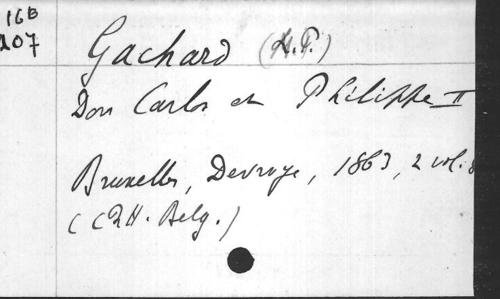 16B
207
Gachard (H.P.)
Don Carlos et Philippe II
Bruxelles, Devroye, 1863, 2 vol. 8
(CRH. Belg.)